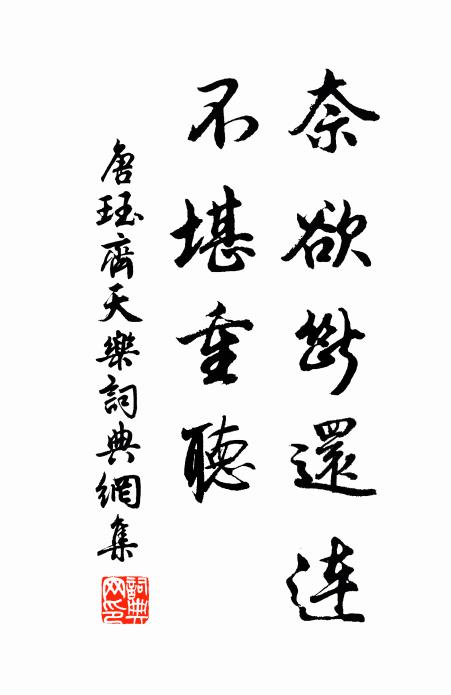 奈欲斷還连
不堪重聽
唐珏齊天樂詞典網集
詞典网印